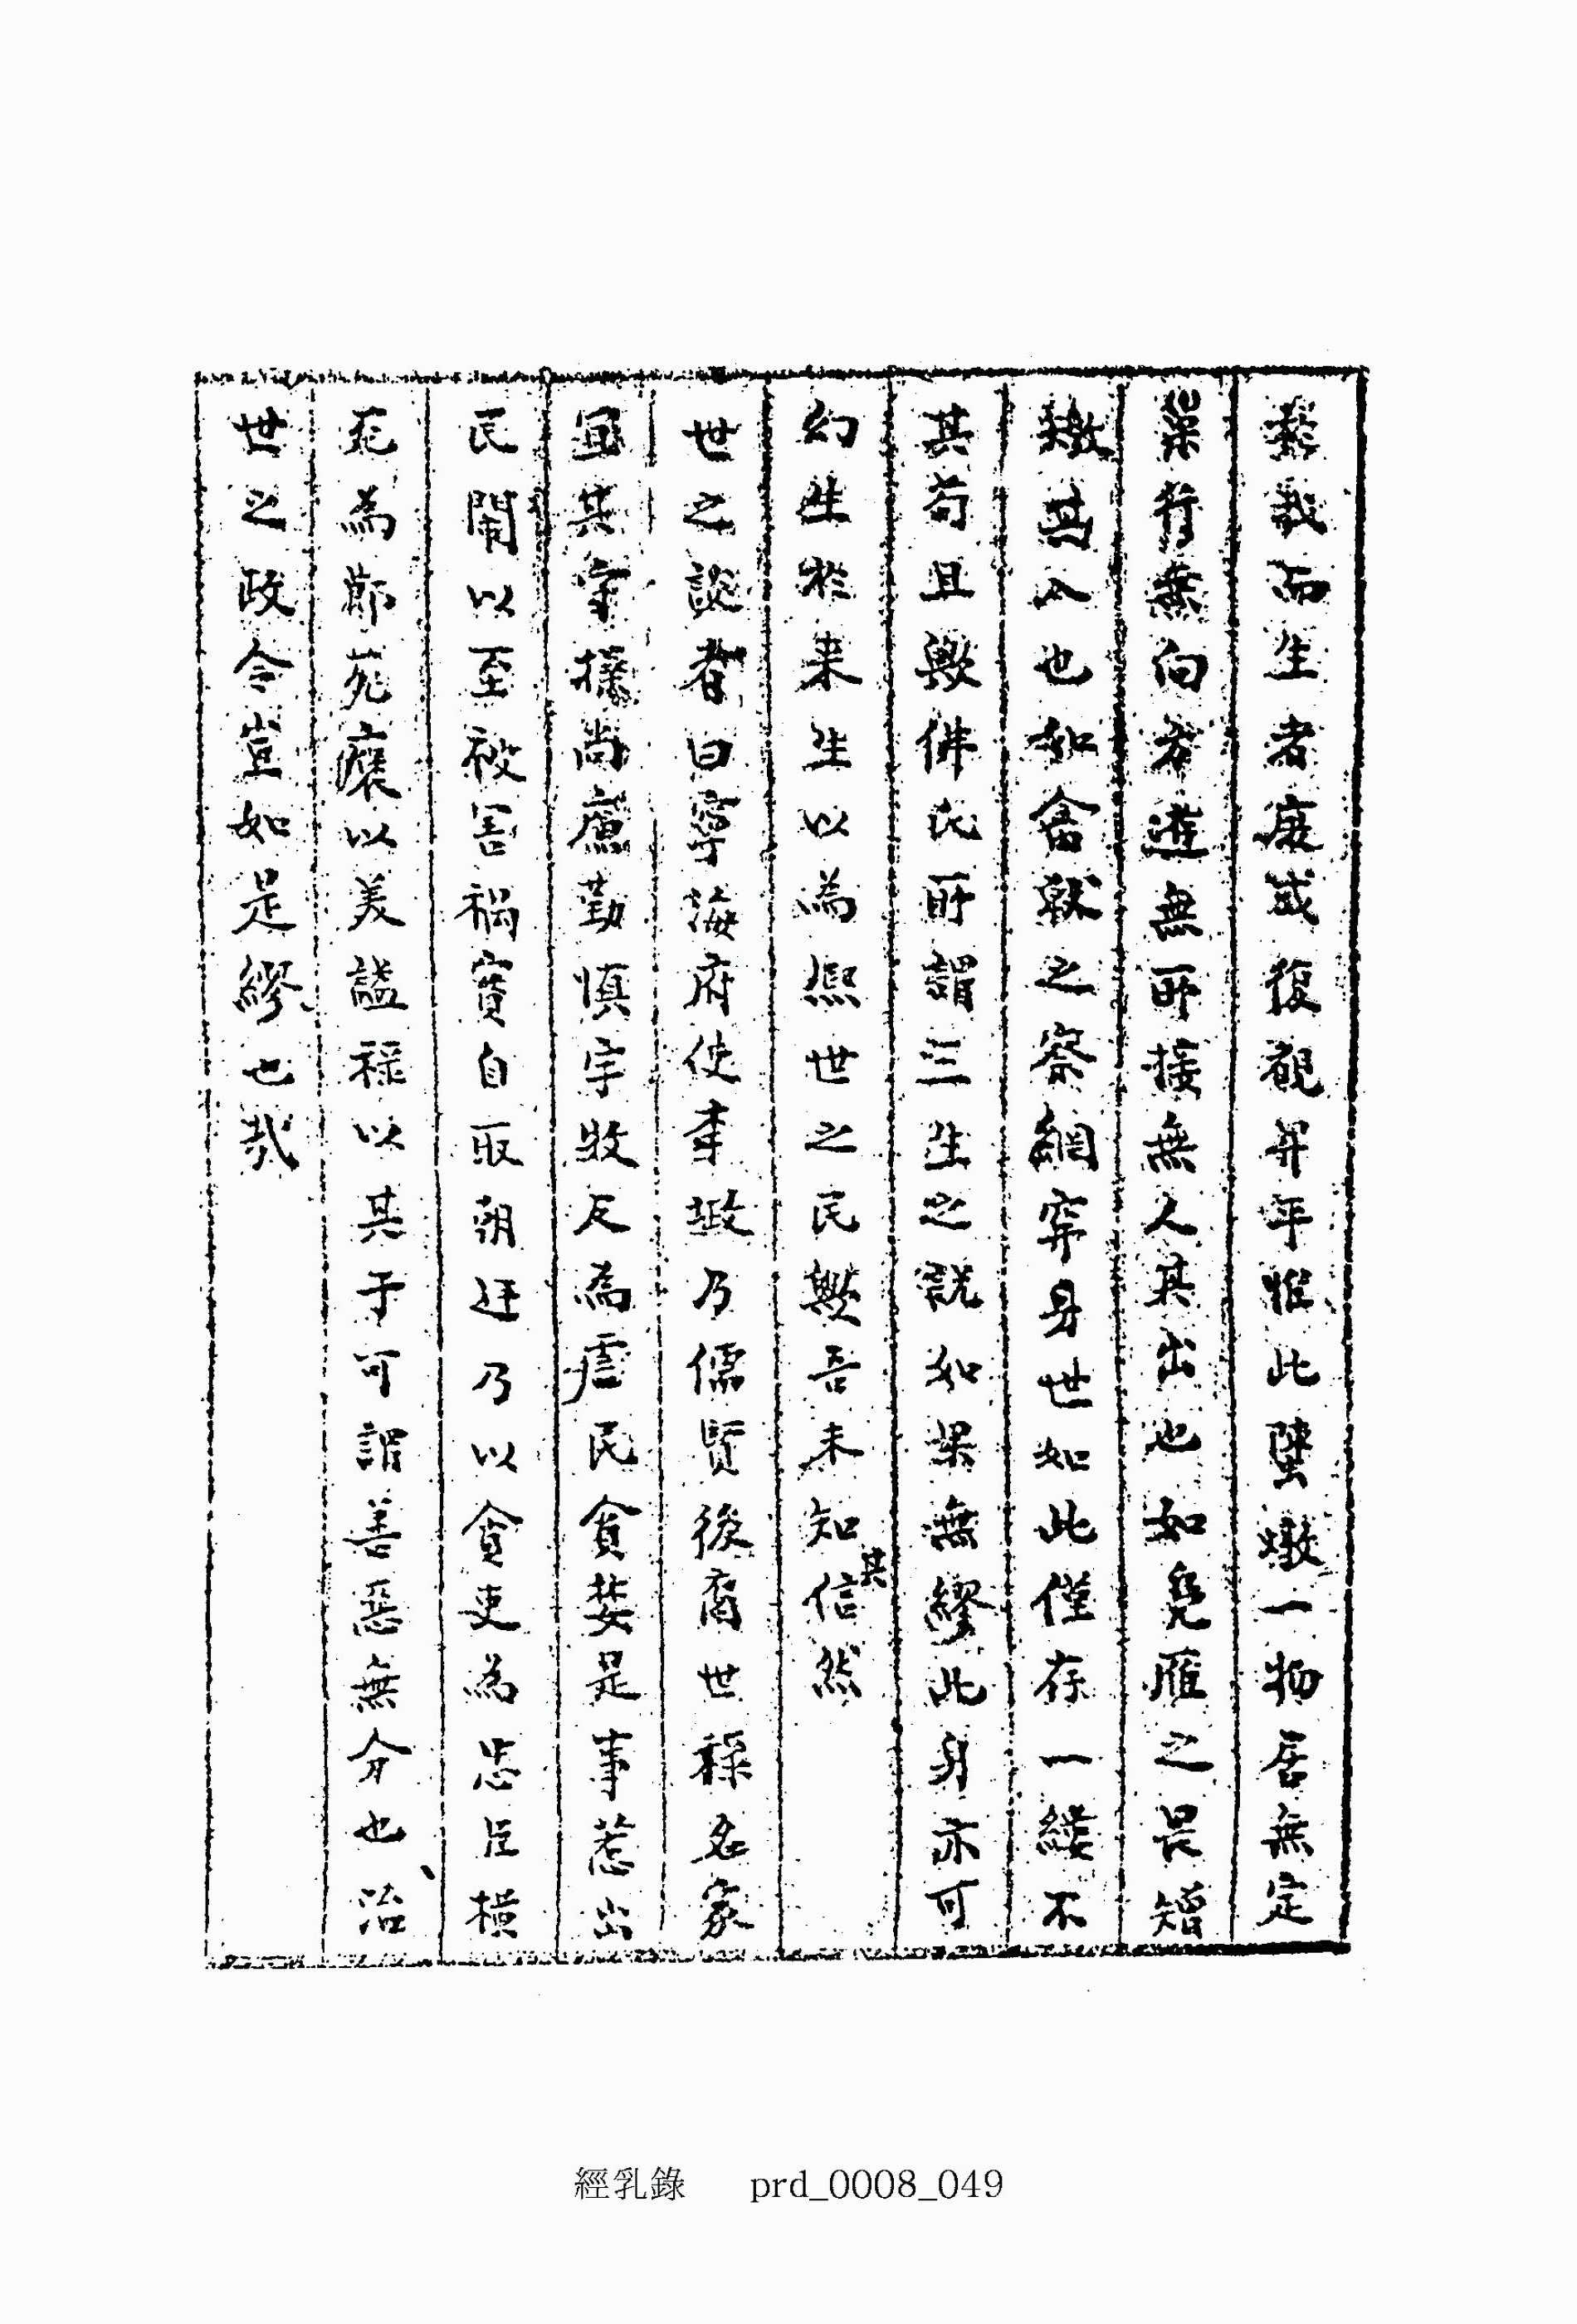 哉而生者庶或復覩年惟此一物居無定
巢行無向者進無所接無人其出也如免雁之畏矰
其入也如禽獸之窮身世如此僅存一縷不
其苟且歟佛氏所謂三生之說如果無繆此身亦可
幻生於来生以為熙世之民歟吾未知其信然
世之談者曰寧海府使李乃儒賢後裔世祿名家
宜其字操尚廉勤慎字牧反為虐民貪婪是事惹出
民鬧以至被害禍實自取朝廷乃以貪吏為忠臣橫
死為節死褒以美諡祿以其子可謂善惡無分也治
世之政令豈如是繆也哉
經乳錄 prd_0008_049